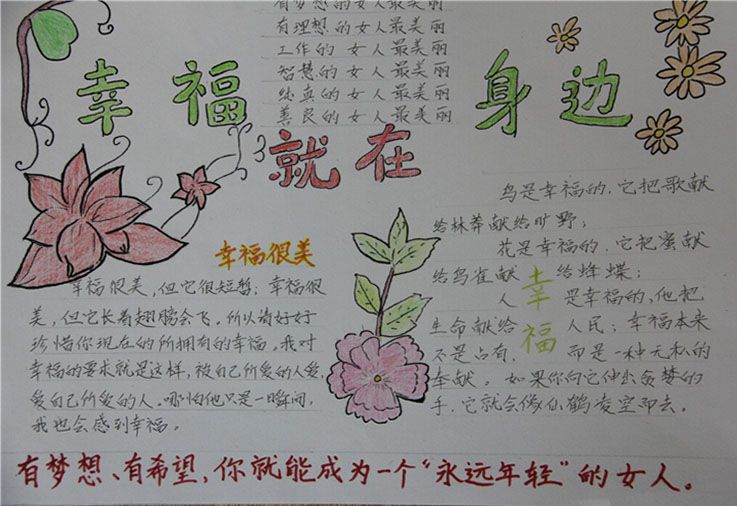 有梦想的女人最美丽
有理想的女人最美丽
工作的女人最美丽
智慧的女人最美丽
纯真的女人最美丽
善良的女人最美丽
幸福
就在
身边
幸福很美
幸福很美,但它很短暂;幸福很
美,但它长着翅膀会飞。所以请好好
珍惜你现在的所拥有的幸福。我对
幸福的要求就是这样,被自己所爱的人爱,
爱自己所爱的人。哪怕他只是一瞬间,
我也会感到幸福。
鸟是幸福的,它把歌献
给林莽献给旷野;
花是幸福的,它把蜜献
给鸟雀献给蜂蝶;
人是幸福的,他把
生命献给人民;幸福本来
不是占有,而是一种无私的
奉献。如果你向它伸出贪婪的
手,它就会像仙鹤凌空而去。
幸福
有梦想、有希望,你就能成为一个“永远年轻”的女人。